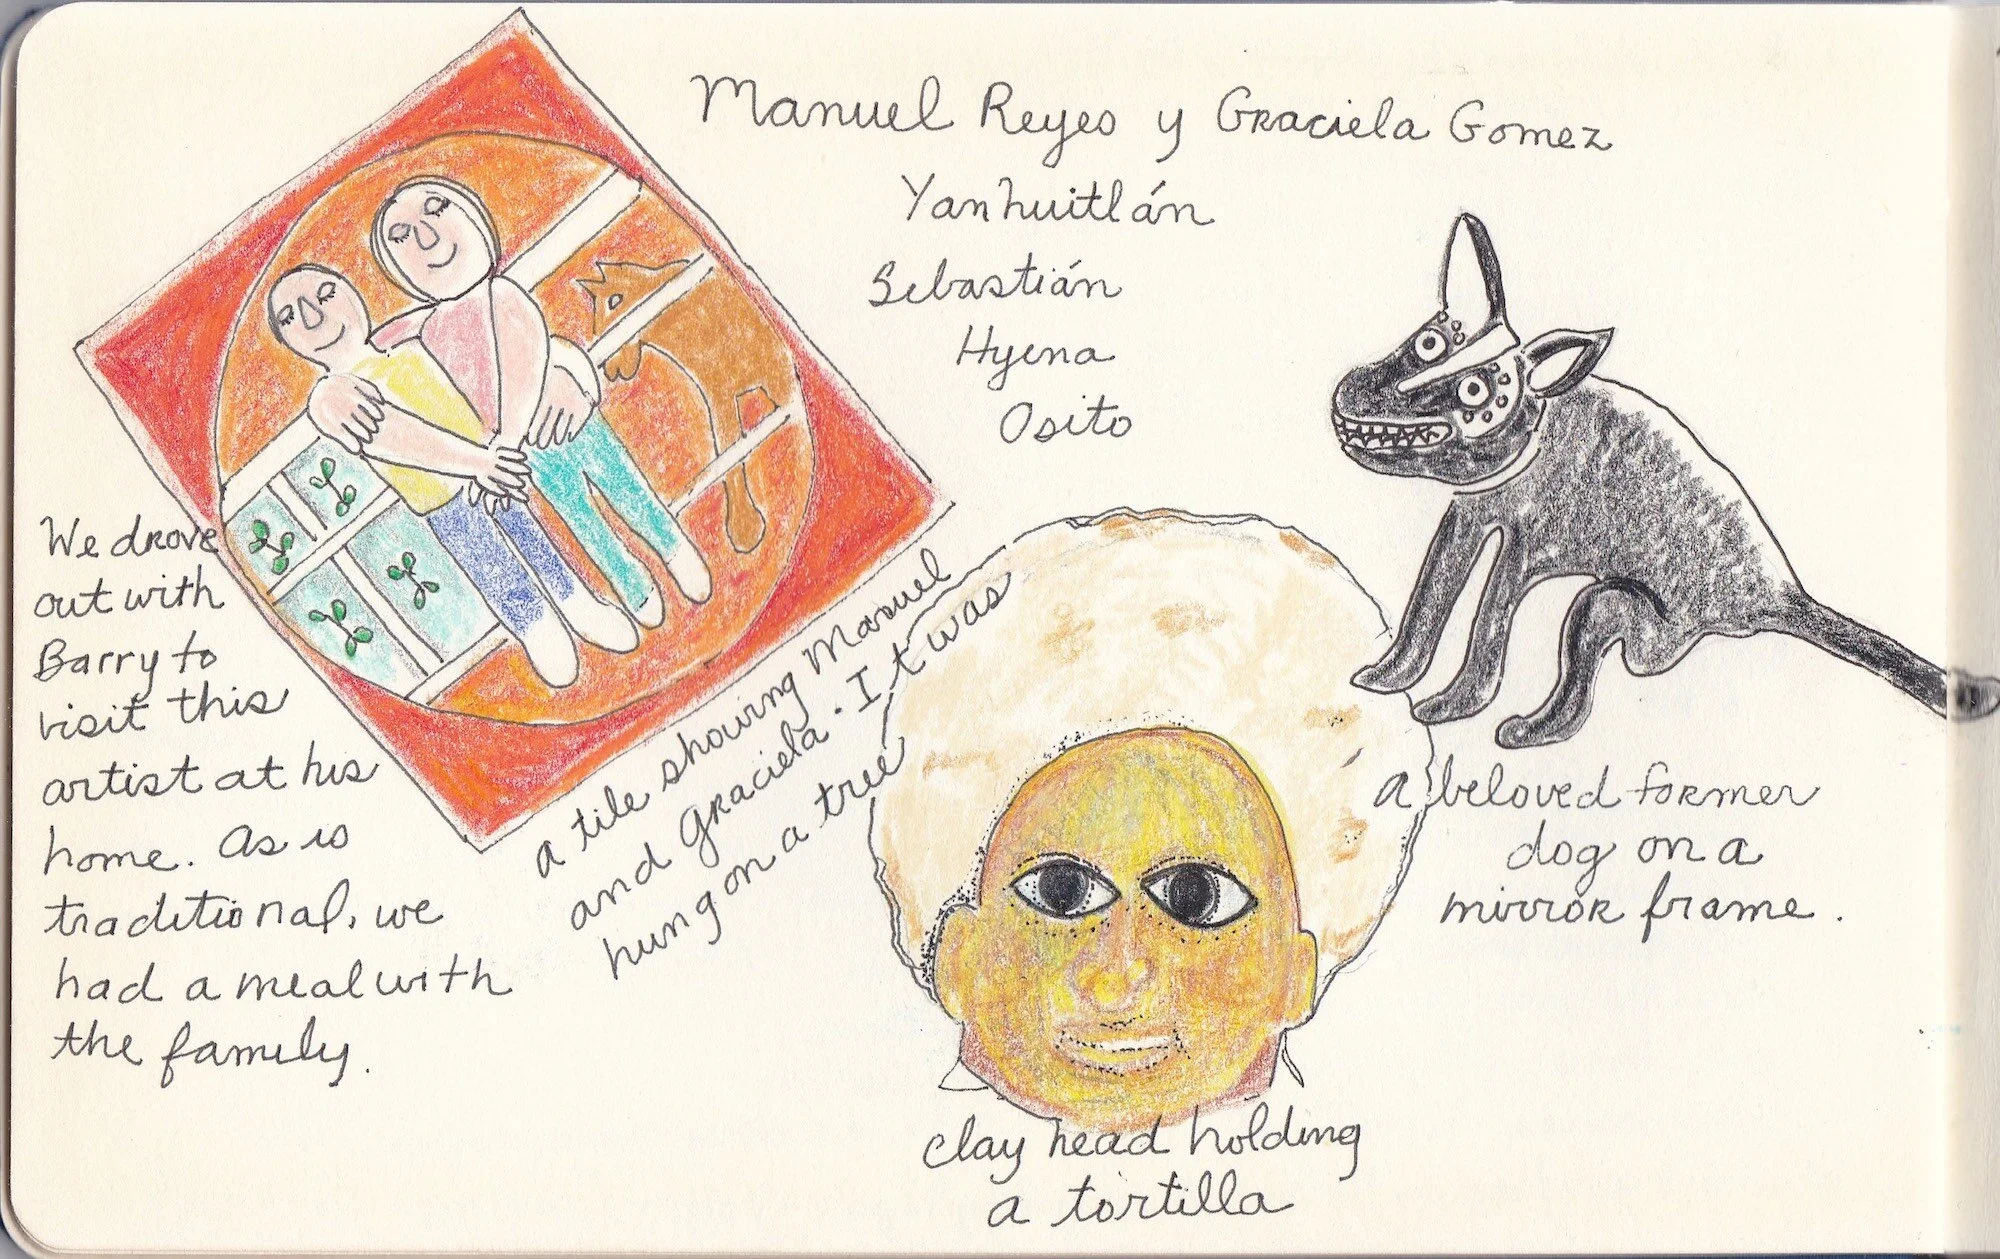 Manuel Reyes y Graciela Gomez
Yanhuitlán
Sebastián
Hyena
Osito
We drove
out with
Barry to
visit this
artist at his
home. As is
traditional, we
had a meal with
the family.
a tile showing Manuel
and Graciela. It was
hung on a tree
a beloved former
dog on a
mirror frame.
clay head holding
a tortilla